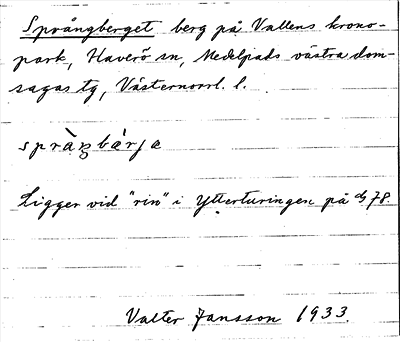 Språngberget berg på Vallens krono-
park, Haverö sn, Medelpads västra dom-
sagas tg, Västernorrl. l.
språŋbärja
Ligger vid "rin" i Ytterturingen på 78.
Valter Jansson 1933.